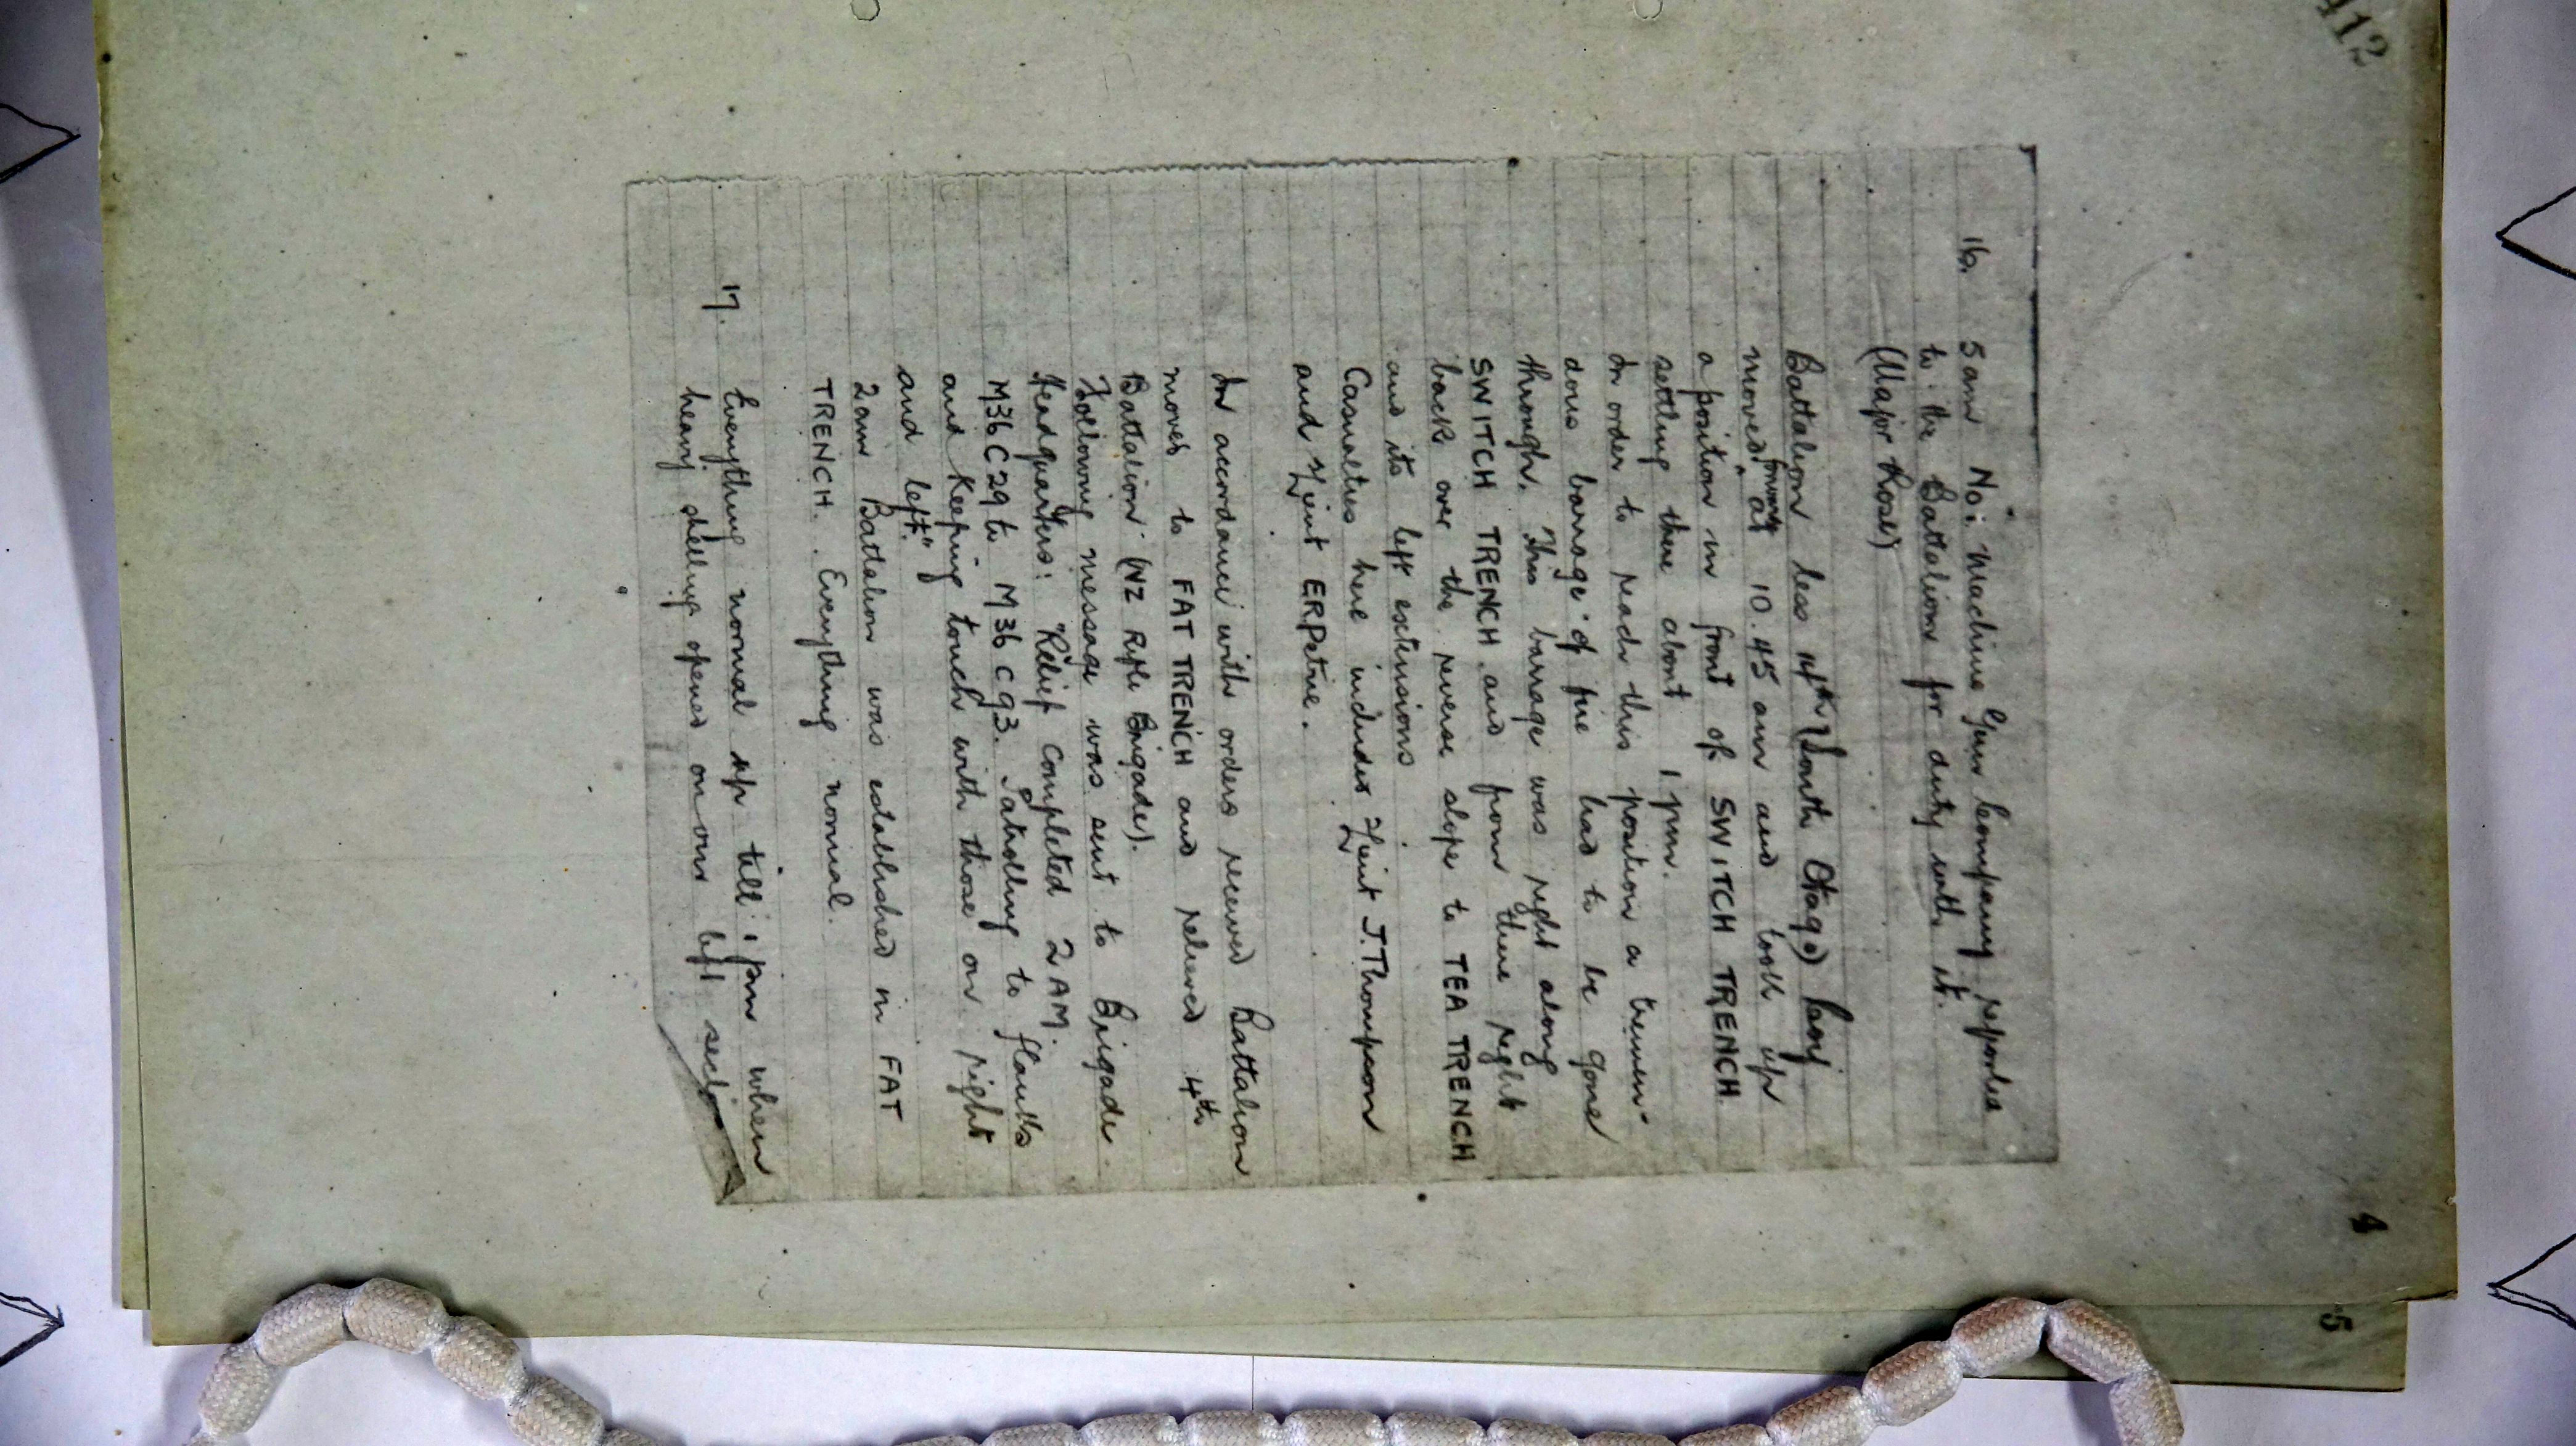 412
4
16. 5am No: Machine Gun Company reported
to the Battalion for duty with it.
(Major Rose)
Battalion less 14th (South Otago) Coy
moved forward at 10.45 am and took up
a position in front of SWITCH TRENCH
settling there about 1 pm.
In order to reach this position a tremen-
dous barrage of fire had to be gone
through. This barrage was right along
SWITCH TRENCH and from there right
back over the reverse slope to TEA TRENCH
and its left extensions
Casualties here included Lieut J.T.Thompson
and Lieut ERPetrie.
In accordance with orders received Battalion
moved to FAT TRENCH and relieved 4th
Battalion (NZ Rifle Brigade).
Following message was sent to Brigade
Headquarters: "Relief Completed 2 AM.
M36C29 to M36C93. Patrolling to flanks
and Keeping touch with those on right
and left."
2am Battalion was established in FAT
TRENCH. Everything normal.
17. Everything normal up till 1 pm when
heavy shelling opened on our left sector
5